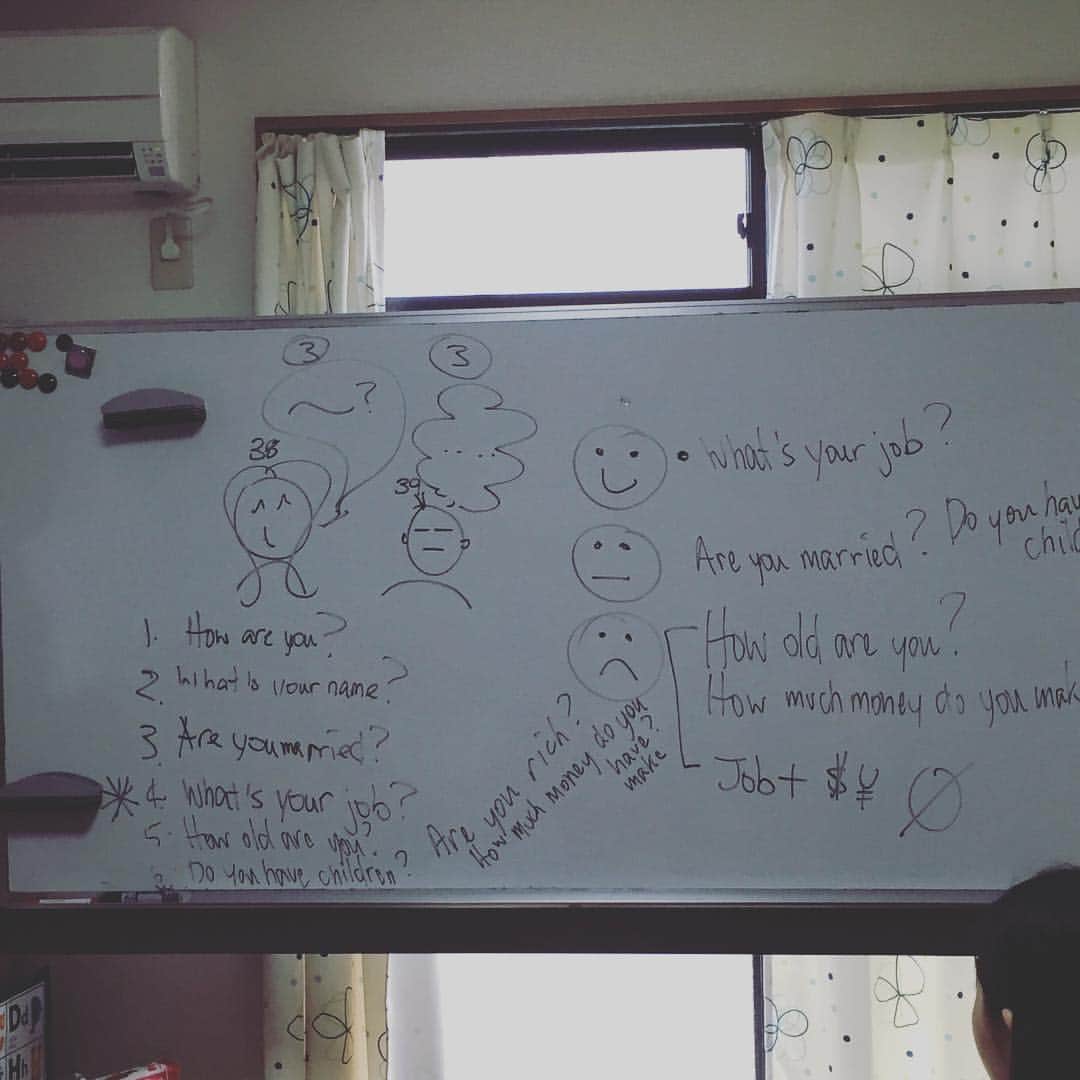 3
3
~?
38
....
39
1. How are you?
2. What is your name?
3. Are you married?
* 4. What's your job?
5. How old are you?
Do you have children?
Are you rich?
How much money do you
have?
make
• What's your job?
Are you married? Do you hav
child
How old are you?
How much money do you mak
Job + $ ¥
Dd
Hh